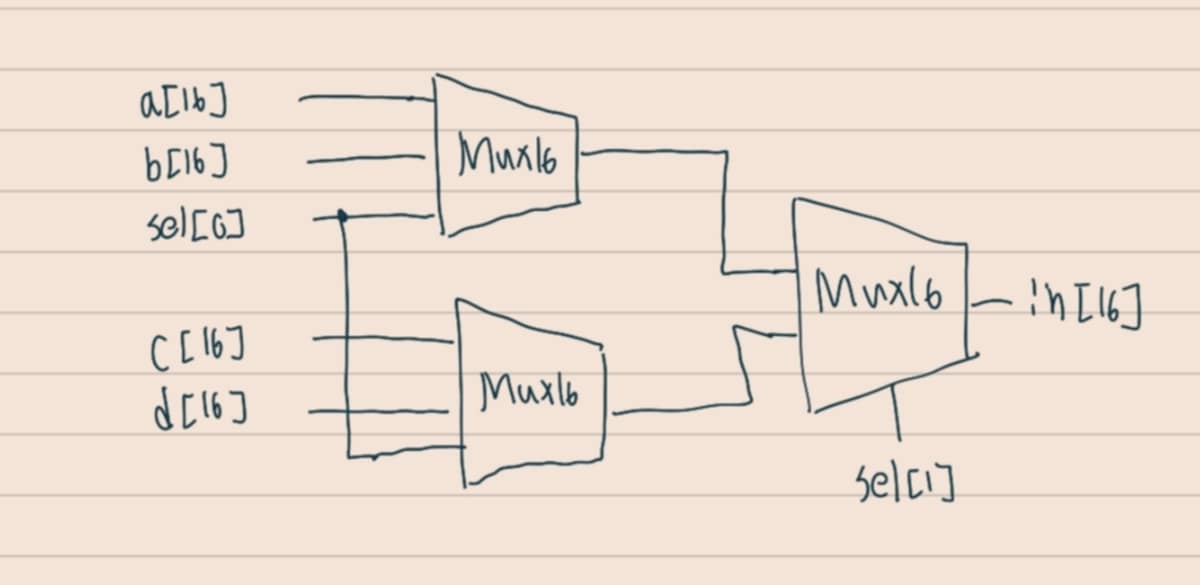 a[16]
b[16]
sel[0]
Mux16
c[16]
d[16]
Mux16
Mux16
in[16]
sel[1]